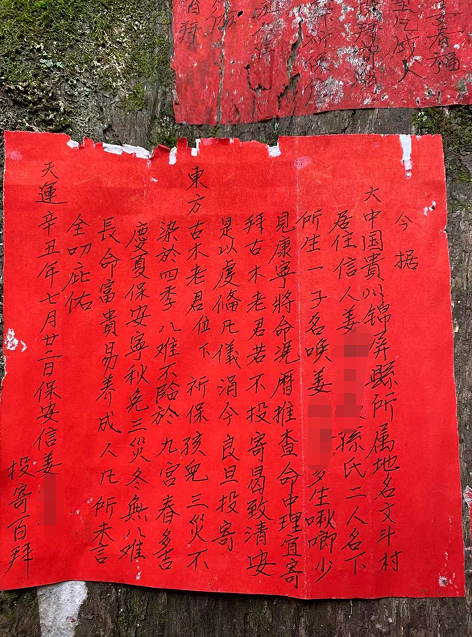 今据
大中国貴州錦屏縣所属地名文斗村
居住信人姜 孫氏二人名下
所生一子名唤姜 多生啾唧少
見康寧將命凂曆推查命中理宜寄
拜古木老君若不投寄曷致清安
是以虔備凡儀涓今良旦投寄
東方古木老君位下 祈保孩兒三災不
染於四季八难不臨於九宮春多吉
慶夏保安寧秋免三災冬無八难
長命富貴易養成人凡所未言
全叨庇佑
天運辛丑年七月廿二日保安信姜
投寄百拜